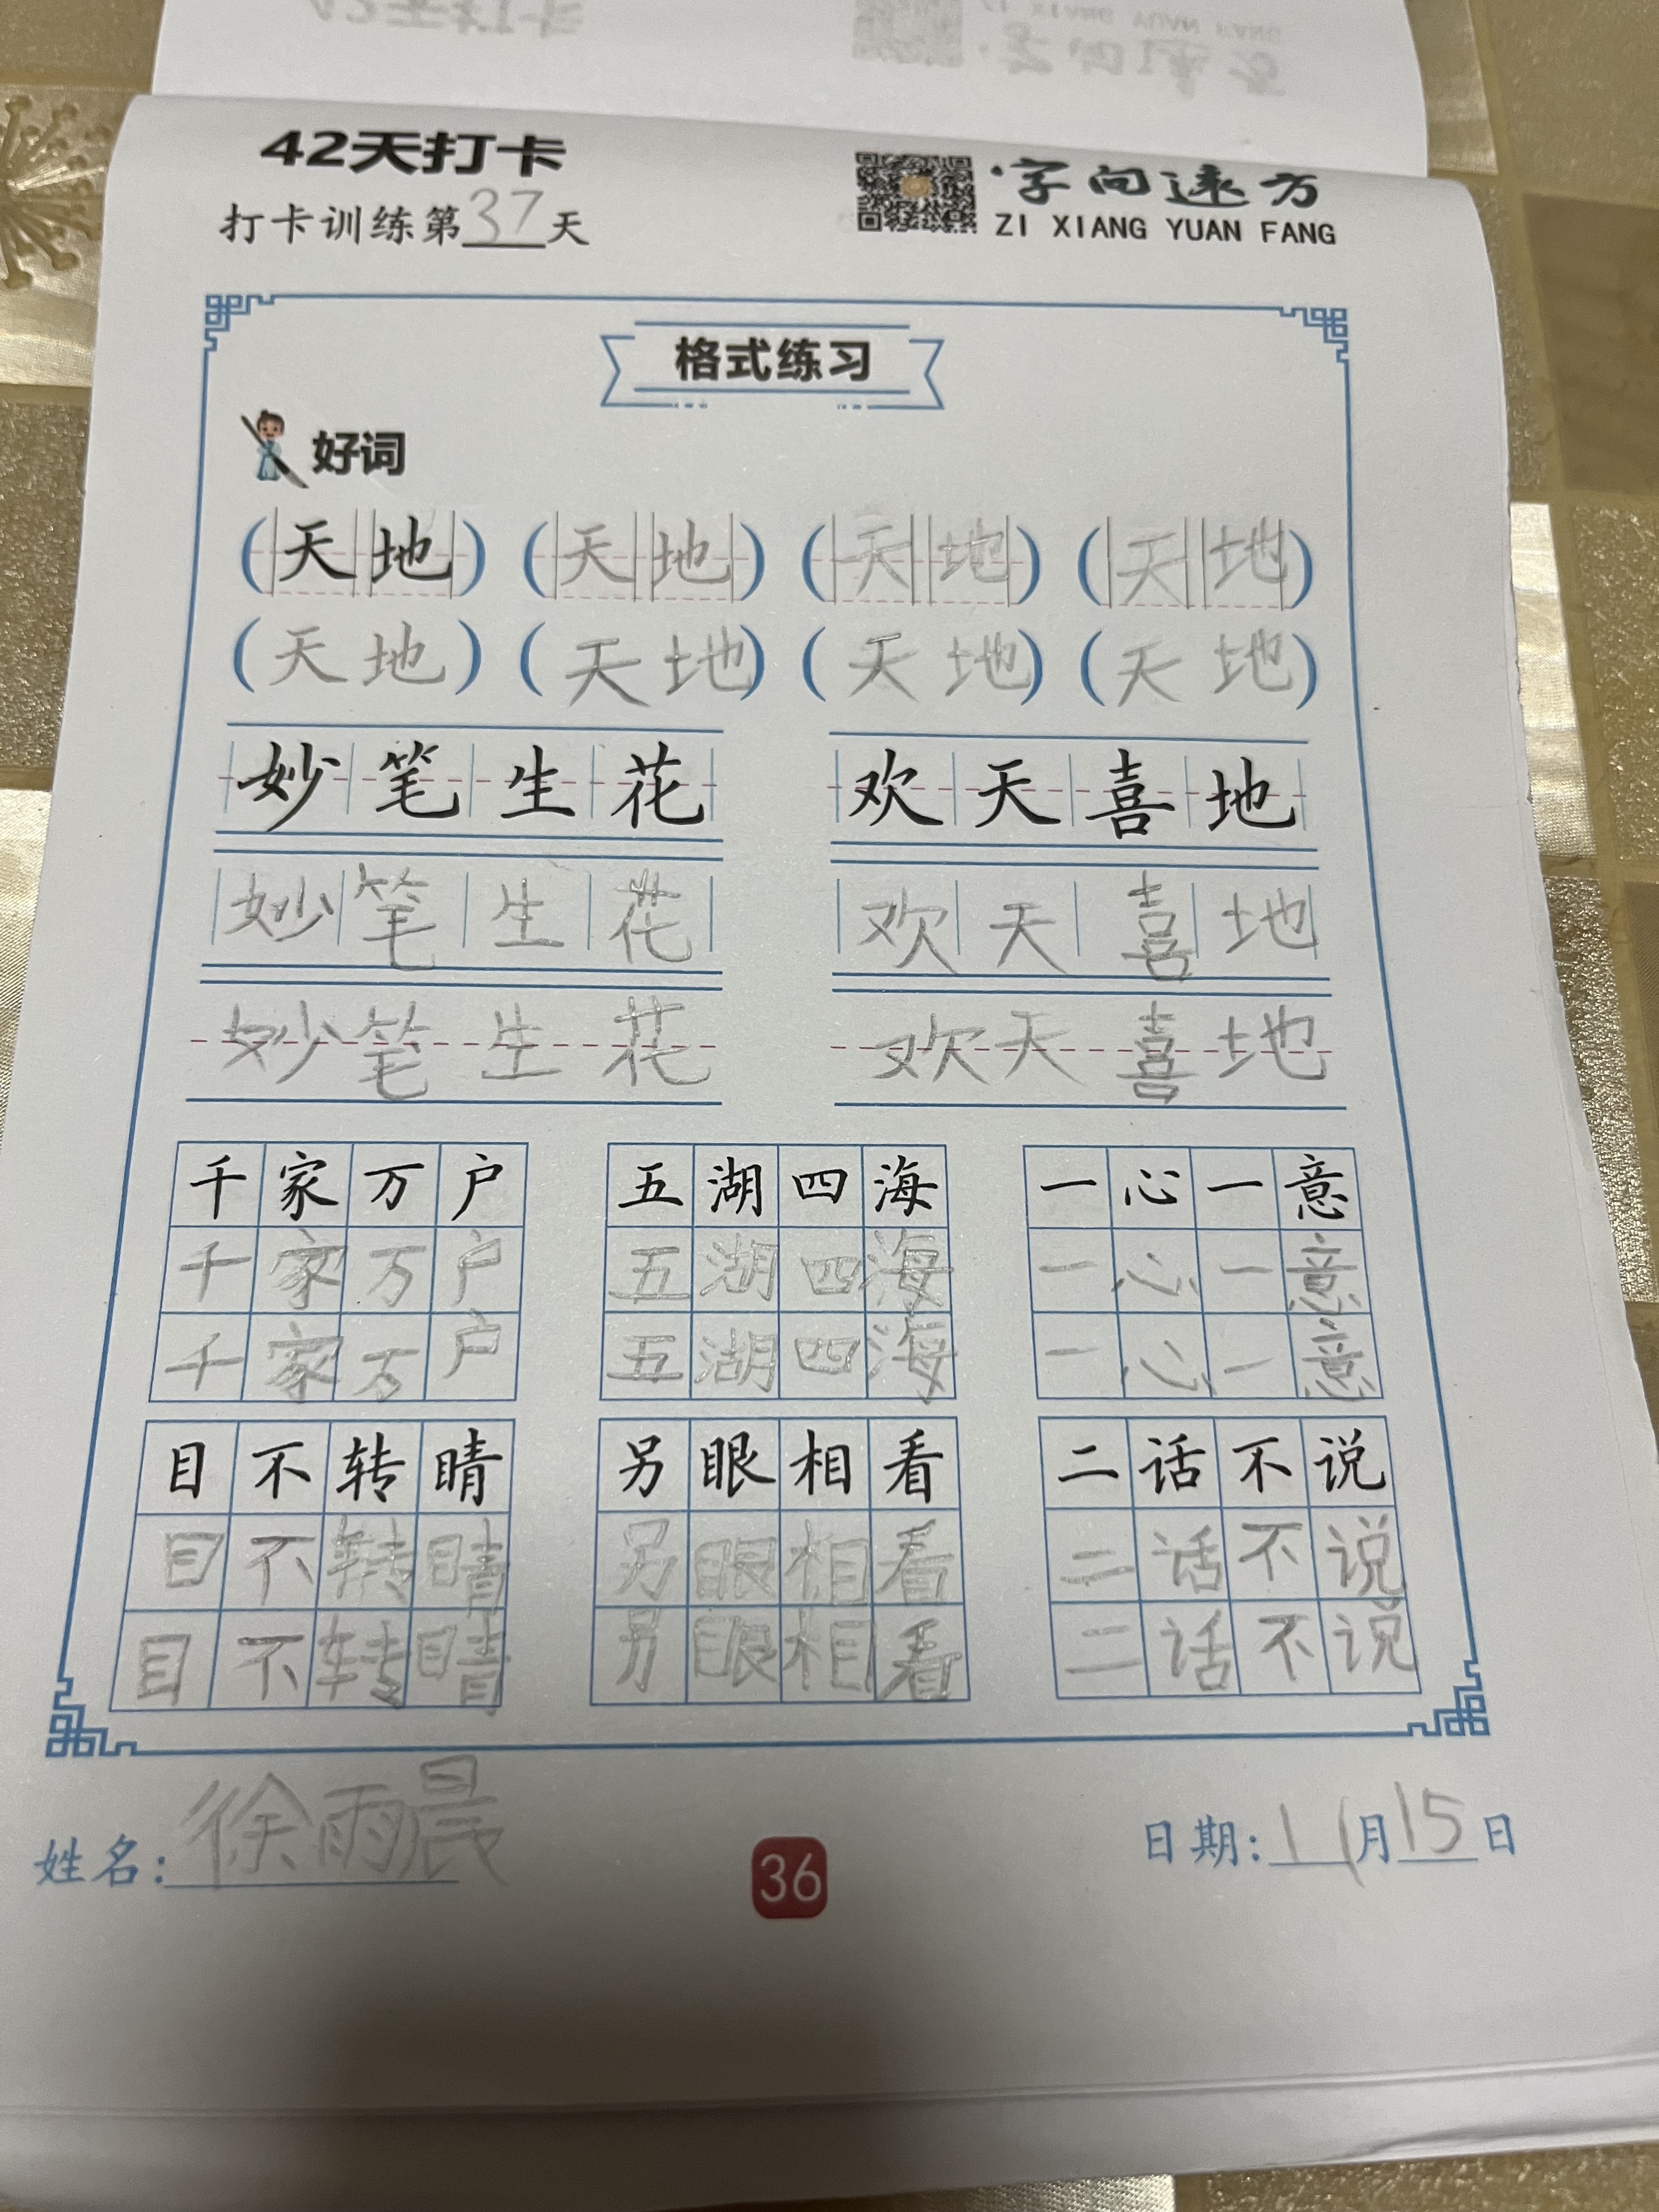 42天打卡
打卡训练第37天
字向远方
ZI XIANG YUAN FANG
格式练习
好词
(天地) (天地) (天地) (天地)
(天地) (天地) (天地) (天地)
妙笔生花 欢天喜地
妙笔生花 欢天喜地
妙笔生花 欢天喜地
千家万户 五湖四海 一心一意
千家万户 五湖四海 一心一意
千家万户 五湖四海 一心一意
目不转睛 另眼相看 二话不说
目不转睛 另眼相看 二话不说
目不转睛 另眼相看 二话不说
姓名:徐雨晨
36
日期:11月15日